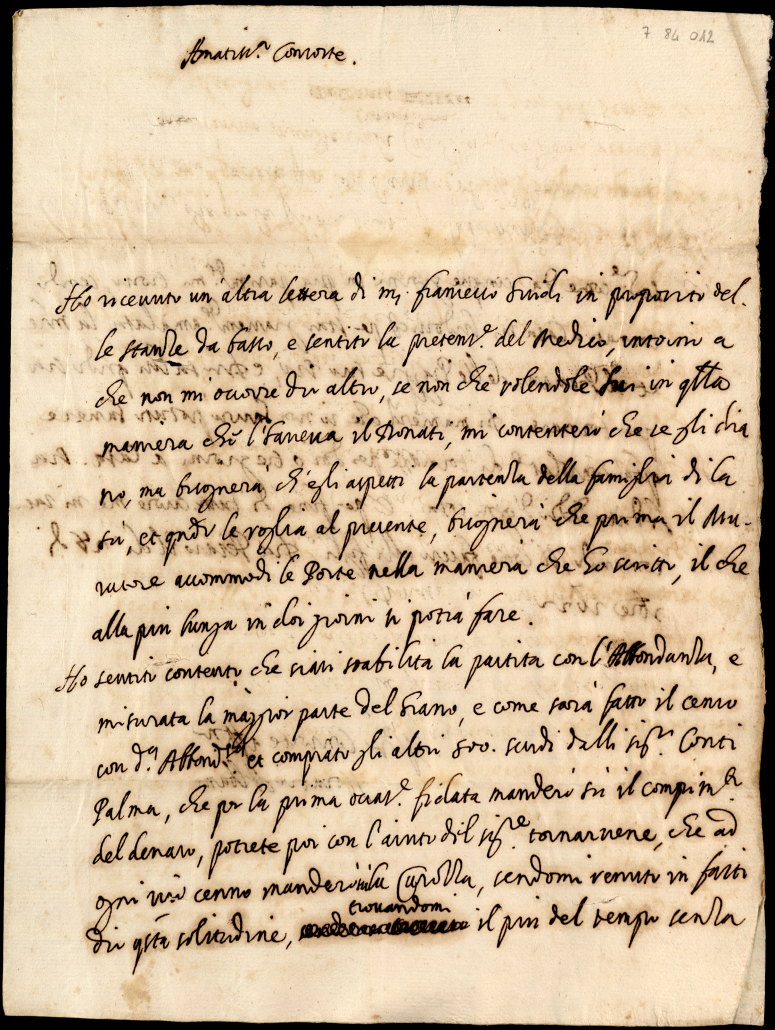 7 84 012
Amatiss.ª Consorte.
Ho ricevuto un'altra lettera di m.ʳ Francesco Guidi in proposito del-
le stanze da basso, e sentito la pretens.ᵉ del Medico, intorno a
che non mi occorre dir altro, se non che volendole lui in qͭta
maniera che l'haveva il Donati, mi contenterò che se gli dia
no, ma bisognerà ch'egli aspetti la partenza della famiglia di la
sù, et qndo le voglia al presente, bisognerà che prima il Mu-
ratore accommodi le Porte nella maniera che ho scritto, il che
alla più lunga in doi giorni si potrà fare.
Ho sentito contento che siasi stabilita la partita con l'Abbondanza, e
misurata la maggior parte del Grano, e come sarà fatto il censo
con d.ª Abbond.ᶻᵃ et comprato gli altri 500. scudi dalli sig.ʳⁱ Conti
Palma, che per la prima occas.ᵉ fidata manderò sù il compim.ᵗᵒ
del denaro, potrete poi con l'aiuto del sig.ʳᵉ tornarvene, che ad
ogni vr̃o cenno manderò la Carozza, sendomi venuto in fasti
dio qs̃ta solitudine, trovandomi il più del tempo senza